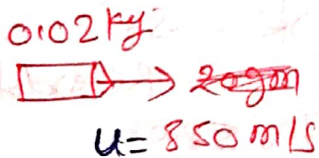 0.02 kg
20gm
u = 850 m/s